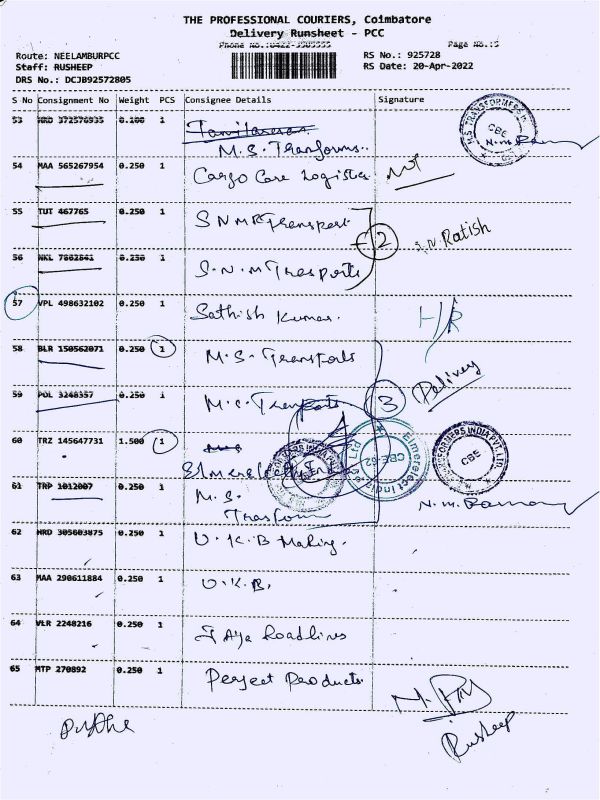 THE PROFESSIONAL COURIERS, Coimbatore
Delivery Runsheet - PCC
Phone No.:0422-3505555
Page No.:5
Route: NEELAMBURPCC
RS No.: 925728
Staff: RUSHEEP
RS Date: 20-Apr-2022
DRS No.: DCJB92572805
S No Consignment No Weight PCS Consignee Details Signature
53 HRD 372576935 0.100 1 Tamilarasan
M.S. Transforms..
54 MAA 565267954 0.250 1 Cargo Care Logistics
55 TUT 467765 0.250 1 SNMR Transport
2
S.N. Ratish
56 NKL 7862841 0.250 1 S.N.M Trasports
57 VPL 498632102 0.250 1 Sathish Kumar.
58 BLR 150562071 0.250 1 M.S. Transforls
59 POL 3248357 0.250 1
3
Delivery
60 TRZ 145647731 1.500 1
61 TRP 1012007 0.250 1 M.S.
Trasform
62 HRD 305603875 0.250 1 U.K.B Making.
63 MAA 290611884 0.250 1 U.K.B,
64 VLR 2248216 0.250 1 J Aya Roadlines
65 MTP 270892 0.250 1 Perfect Products
Rusheep
M.S TRANSFORMERS
CBE
Elmerelect India
CBE-62
Ltd
FORMERS INDIA PVT. LTD.
CBE